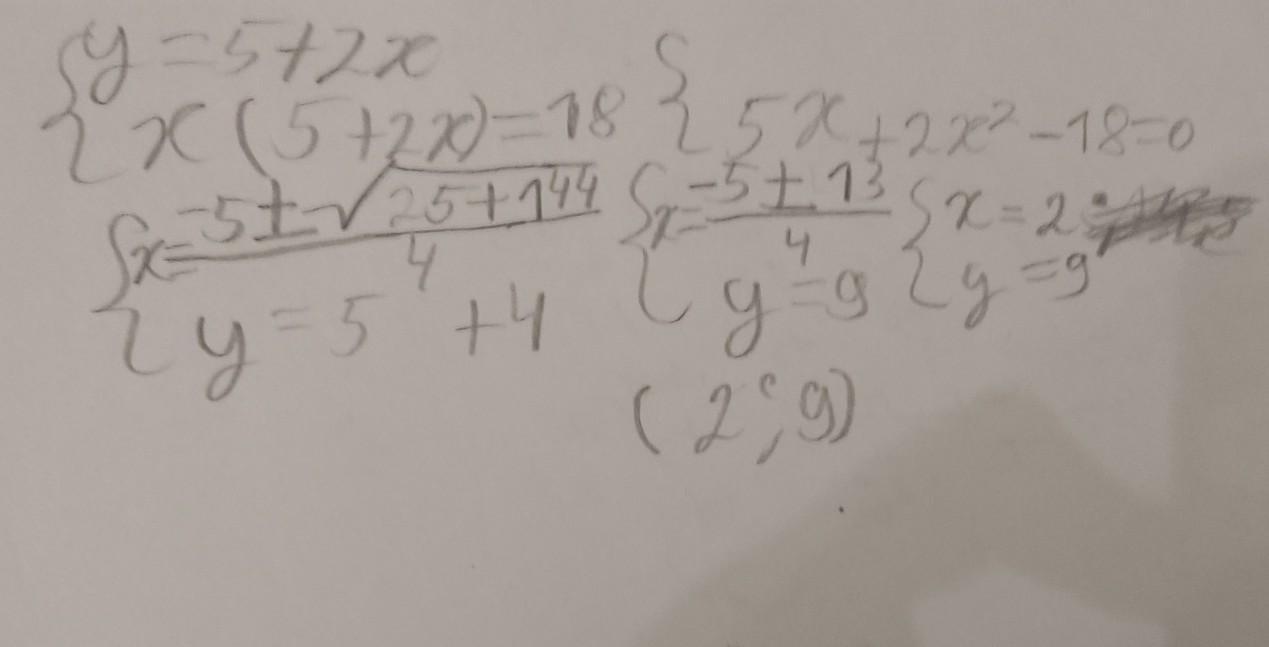 { y = 5 + 2x
{ x (5 + 2x) = 18 { 5x + 2x² - 18 = 0
{ x = (-5 ± √(25 + 144)) / 4 { x = (-5 ± 13) / 4 { x = 2
{ y = 5 + 4 { y = 9 { y = 9
(2 ; 9)